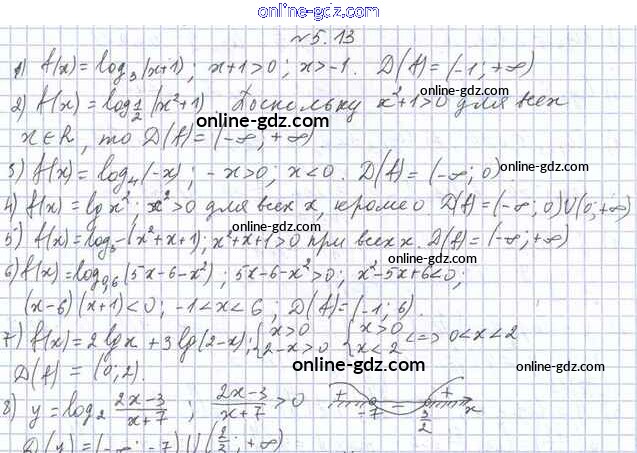 online-gdz.com
№5.13
1) f(x) = log₃(x+1); x+1>0; x>-1. D(f) = (-1; +∞)
online-gdz.com
2) f(x) = log 1/2 (x²+1). Поскольку x²+1>0 для всех
online-gdz.com
x∈R, то D(f) = (-∞; +∞)
3) f(x) = log₄(-x); -x>0; x<0. D(f) = (-∞; 0)
online-gdz.com
4) f(x) = lg x²; x²>0 для всех x, кроме 0 D(f) = (-∞; 0)∪(0; +∞)
online-gdz.com
5) f(x) = log₃ (x²+x+1); x²+x+1>0 при всех x. D(f) = (-∞; +∞)
online-gdz.com
6) f(x) = log₀,₆(5x-6-x²); 5x-6-x²>0; x²-5x+6<0;
(x-6)(x+1)<0; -1<x<6; D(f) = (-1; 6).
online-gdz.com
7) f(x) = 2 lg x + 3 lg(2-x); { x>0 2-x>0 { x>0 x<2 <=> 0<x<2
online-gdz.com
D(f) = (0; 2).
8) y = log₂ (2x-3)/(x+7); (2x-3)/(x+7) > 0 + -7 - 3/2 + x
online-gdz.com
D(y) = (-∞; -7)∪(3/2; +∞)